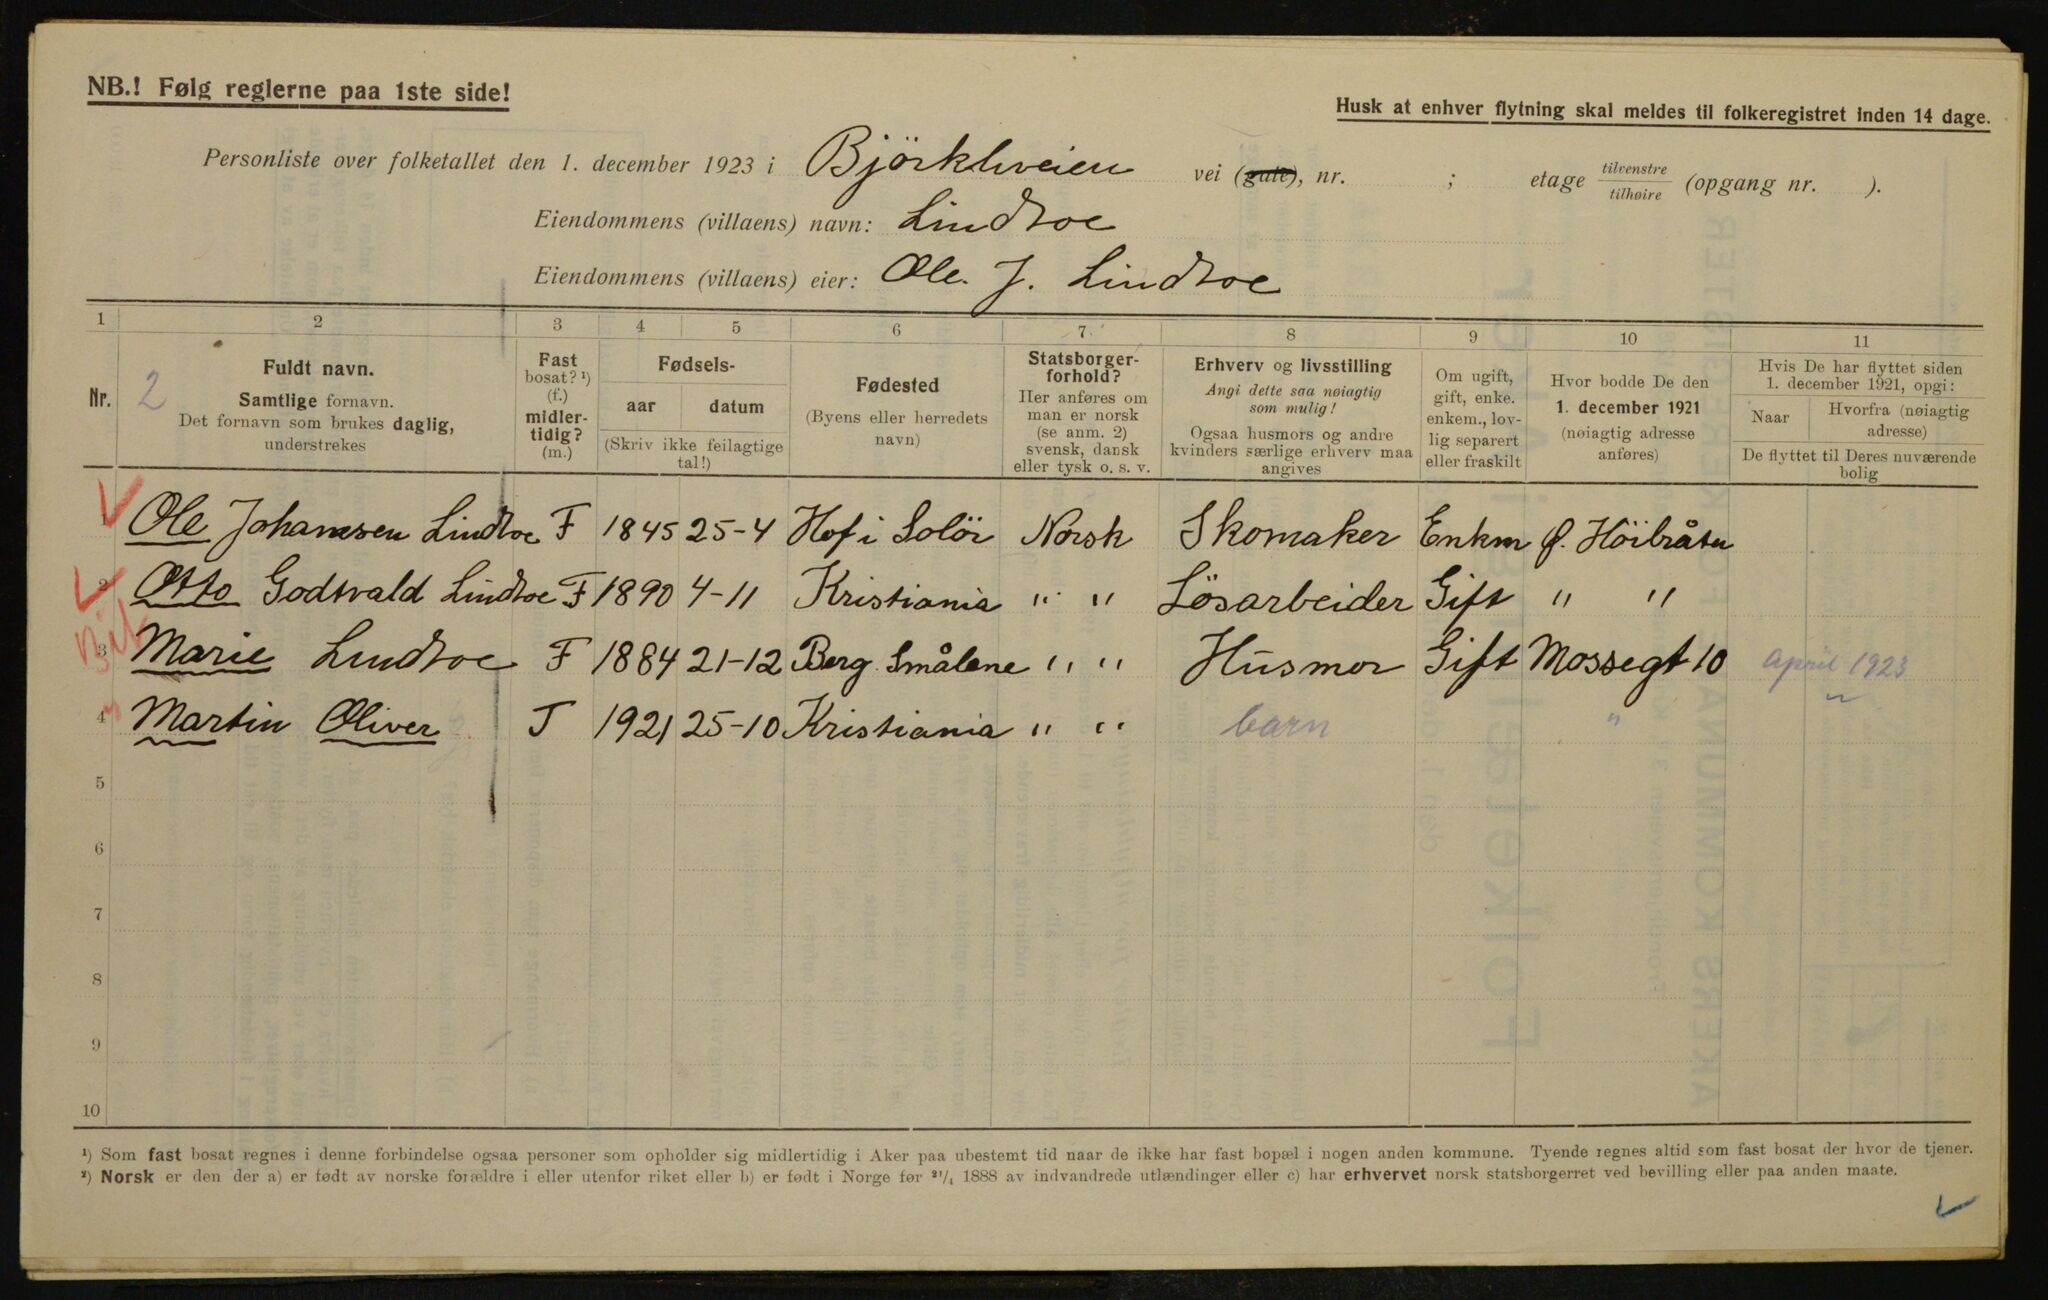 NB.! Følg reglerne paa 1ste side!
Husk at enhver flytning skal meldes til folkeregistret inden 14 dage.
Personliste over folketallet den 1. december 1923 i Björkhveien vei (gate), nr. ; etage tilvenstre tilhøire (opgang nr. ).
Eiendommens (villaens) navn: Lindtoe
Eiendommens (villaens) eier: Ole. J. Lindtoe
1 2 3 4 5 6 7 8 9 10 11
Nr.
2
Fuldt navn.
Samtlige fornavn.
Det fornavn som brukes daglig,
understrekes
Fast
bosat? ¹)
(f.)
midler-
tidig?
(m.)
Fødsels-
aar datum
(Skriv ikke feilagtige
tal!)
Fødested
(Byens eller herredets
navn)
Statsborger-
forhold?
Her anføres om
man er norsk
(se anm. 2)
svensk, dansk
eller tysk o. s. v.
Erhverv og livsstilling
Angi dette saa nøiagtig
som mulig!
Ogsaa husmors og andre
kvinders særlige erhverv maa
angives
Om ugift,
gift, enke.
enkem., lov-
lig separert
eller fraskilt
Hvor bodde De den
1. december 1921
(nøiagtig adresse
anføres)
Hvis De har flyttet siden
1. december 1921, opgi:
Naar
Hvorfra (nøiagtig
adresse)
De flyttet til Deres nuværende
bolig
1 Ole Johansen Lindtoe F 1845 25-4 Hof i Solör Norsk Skomaker Enkm Ø. Höibråten
2 Otto Godtvald Lindtoe F 1890 4-11 Kristiania " " Lösarbeider Gift " "
3 Marie Lindtoe F 1884 21-12 Berg Smålene " " Husmor Gift Mossegt 10 April 1923
4 Martin Oliver F 1921 25-10 Kristiania " " barn " "
5
6
7
8
9
10
¹) Som fast bosat regnes i denne forbindelse ogsaa personer som opholder sig midlertidig i Aker paa ubestemt tid naar de ikke har fast bopæl i nogen anden kommune. Tyende regnes altid som fast bosat der hvor de tjener.
²) Norsk er den der a) er født av norske forældre i eller utenfor riket eller b) er født i Norge før ²¹/₄ 1888 av indvandrede utlændinger eller c) har erhvervet norsk statsborgerret ved bevilling eller paa anden maate.